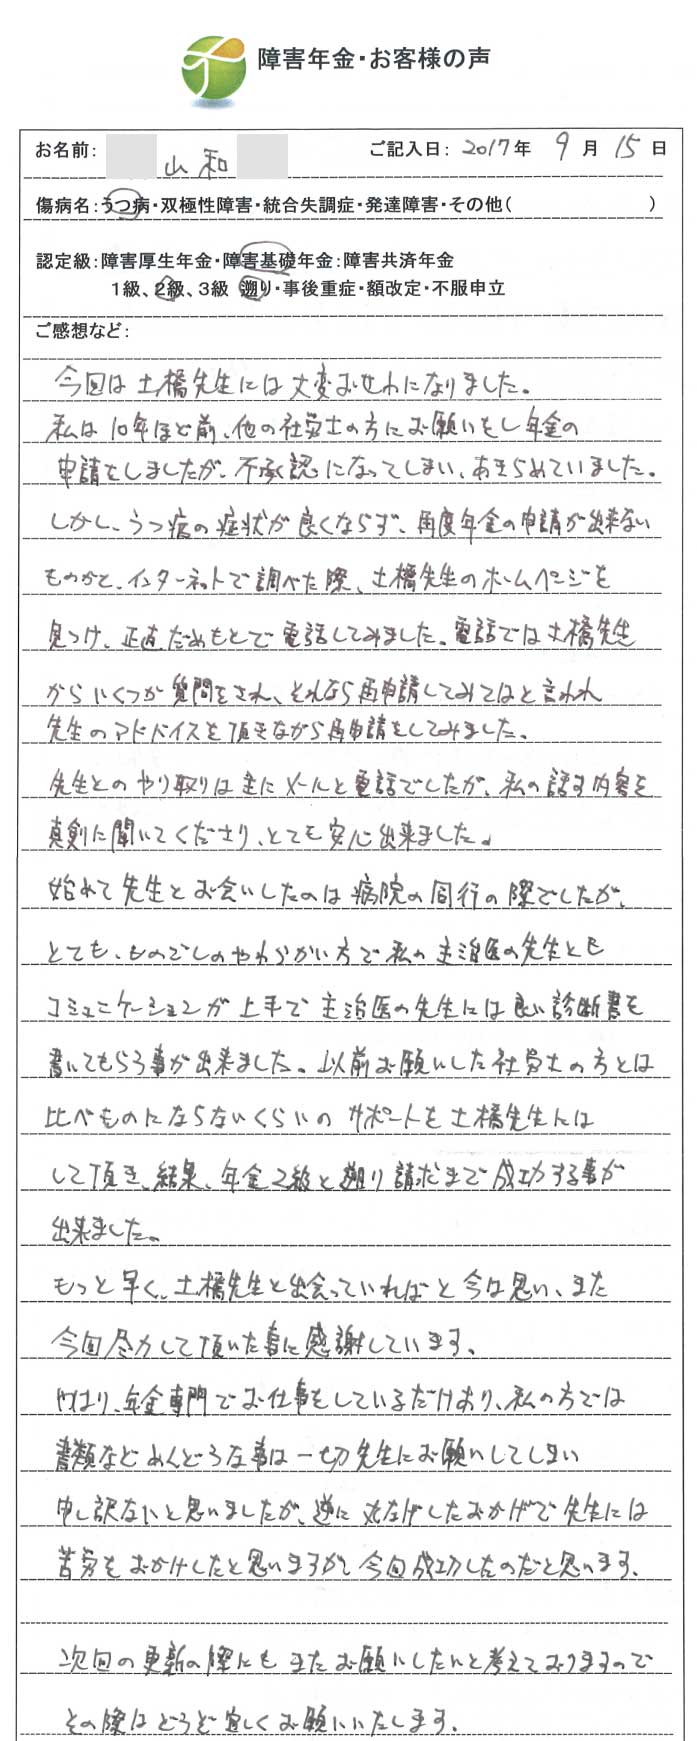 障害年金・お客様の声
お名前: 山和 ご記入日: 2017年 9月 15日
傷病名:うつ病・双極性障害・統合失調症・発達障害・その他( )
認定級:障害厚生年金・障害基礎年金:障害共済年金
1級、2級、3級 遡り・事後重症・額改定・不服申立
ご感想など:
今回は土橋先生には大変おせわになりました。
私は10年ほど前、他の社労士の方にお願いをし年金の
申請をしましたが、不承認になってしまい、あきらめていました。
しかし、うつ病の症状が良くならず、再度年金の申請が出来ない
ものかと、インターネットで調べた際、土橋先生のホームページを
見つけ、正直だめもとで電話してみました。電話では土橋先生
からいくつか質問をされ、それなら再申請してみてはと言われ
先生のアドバイスを頂きながら再申請をしてみました。
先生とのやり取りは主にメールと電話でしたが、私の話す内容を
真剣に聞いてくださり、とても安心出来ました。
始めて先生とお会いしたのは病院の同行の際でしたが、
とても、ものごしのやわらかい方で私の主治医の先生とも
コミュニケーションが上手で主治医の先生には良い診断書を
書いてもらう事が出来ました。以前お願いした社労士の方とは
比べものにならないくらいのサポートを土橋先生には
して頂き、結果、年金2級と遡り請求まで成功する事が
出来ました。
もっと早く、土橋先生と出会っていればと今は思い、また
今回尽力して頂いた事に感謝しています。
やはり、年金専門でお仕事をしているだけあり、私の方では
書類などめんどうな事は一切先生にお願いしてしまい
申し訳ないと思いましたが、逆に丸なげしたおかげで先生には
苦労をおかけしたと思いますがで今回成功したのだと思います。
次回の更新の際にもまたお願いしたいと考えておりますので
その際はどうぞ宜しくお願いいたします。